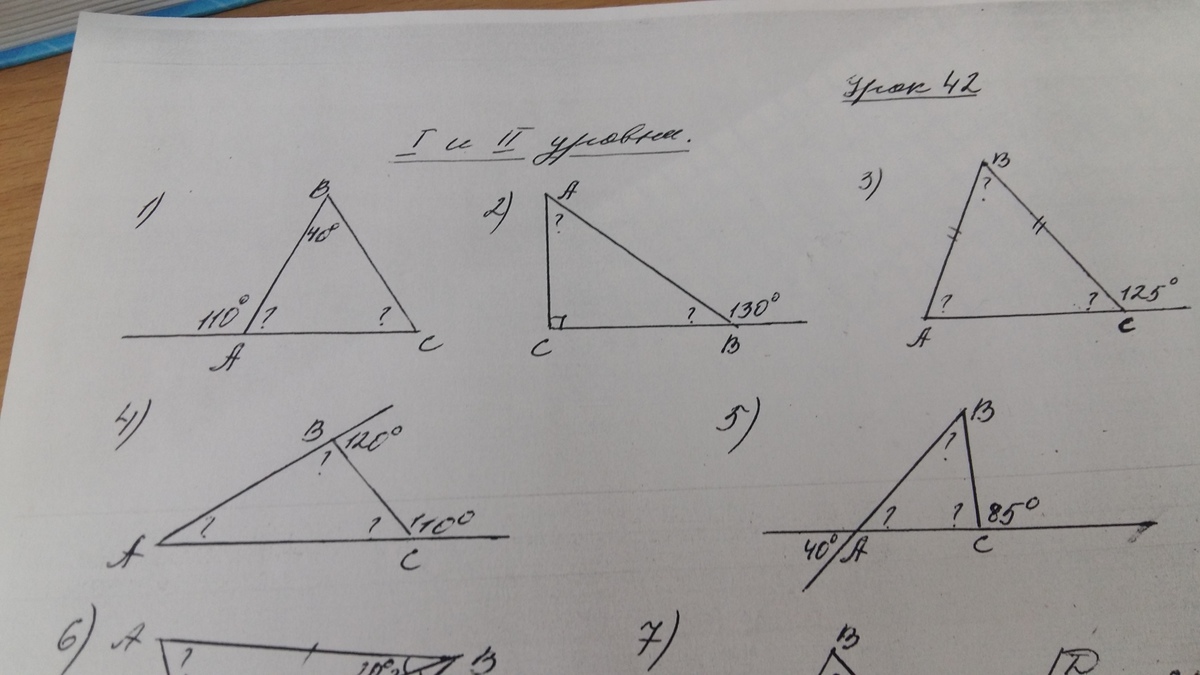 Урок 42
I и II уровни.
1) B 40° 110° ? ? A C
2) A ? ? 130° C B
3) B ? ? ? 125° A C
4) B 120° ? ? ? 110° A C
5) B ? ? ? 85° 40° A C
6) A ? B
7) B D